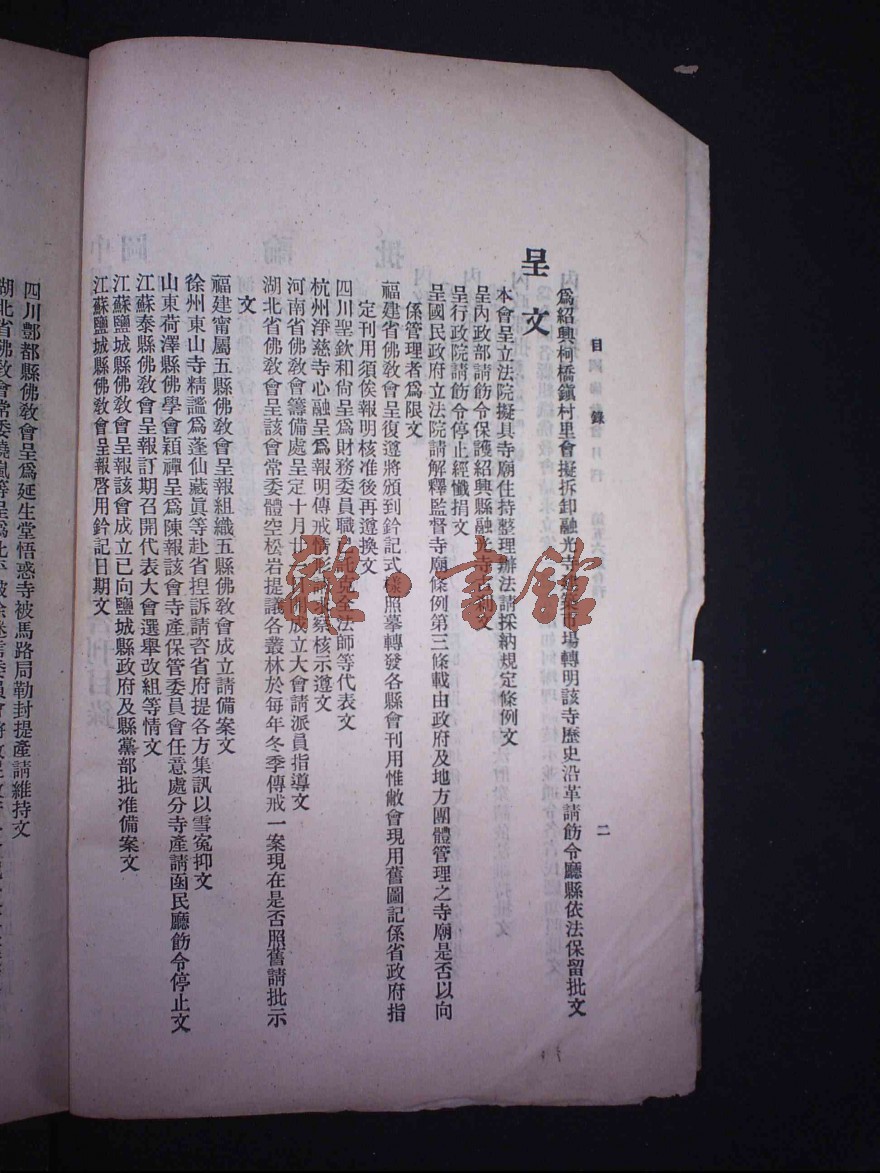 目錄
二
爲紹興柯橋鎮村里會擬拆卸融光寺建築市場轉明該寺歷史沿革請飭令廳縣依法保留批文
呈文
本會呈立法院擬具寺廟住持整理辦法請採納規定條例文
呈內政部請飭令保護紹興縣融光寺古刹文
呈行政院請飭令停止經懺捐文
呈國民政府立法院請解釋監督寺廟條例第三條載由政府及地方團體管理之寺廟是否以向
係管理者爲限文
福建省佛敎會呈復遵將頒到鈐記式樣照摹轉發各縣會刊用惟敝會現用舊圖記係省政府指
定刊用須俟報明核准後再遵換文
四川聖欽和尙呈爲財務委員職已託克全法師等代表文
杭州淨慈寺心融呈爲報明傳戒情形 察核示遵文
河南省佛敎會籌備處呈定十月廿 開成立大會請派員指導文
湖北省佛敎會呈該會常委體空松岩提議各叢林於每年冬季傳戒一案現在是否照舊請批示
文
福建甯屬五縣佛敎會呈報組織五縣佛敎會成立請備案文
徐州東山寺精謐爲蓬仙藏眞等赴省捏訴請咨省府提各方集訊以雪冤抑文
山東荷澤縣佛學會穎禪呈爲陳報該會寺產保管委員會任意處分寺產請函民廳飭令停止文
江蘇泰縣佛敎會呈報訂期召開代表大會選舉改組等情文
江蘇鹽城縣佛敎會呈報該會成立已向鹽城縣政府及縣黨部批准備案文
江蘇鹽城縣佛敎會呈報啓用鈐記日期文
四川酆都縣佛敎會呈爲延生堂悟惑寺被馬路局勒封提產請維持文
湖北省佛敎會常委曉嵐等呈爲
雜·書館